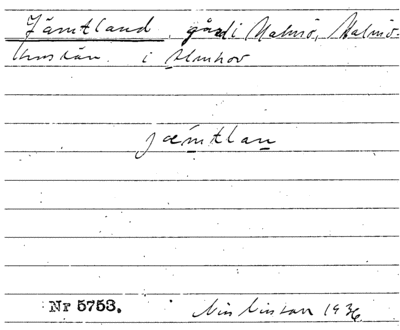 Jämtland, gård i Malmö, Malmö-
hus län. i Almhov
jæmtlan
Nr 5753. 1936